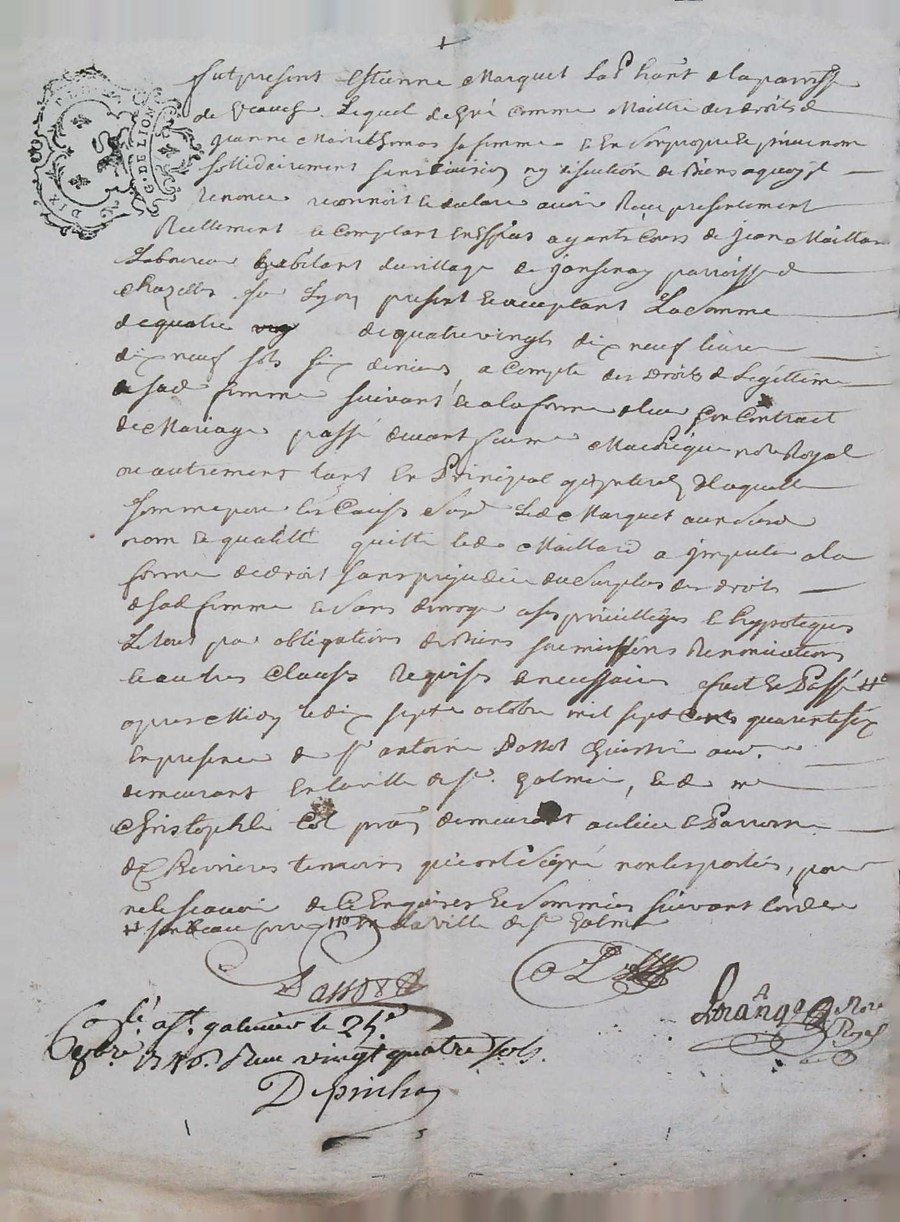 G. DE LION
Fut present Estienne Marquet habitant de la parroisse
de Veauche Lequel de gré comme Maitre des droits de
Jeanne Marie Thomas sa femme Et En son propre Et privé nom
sollidairement sans division ny discution de Biens a quoy il
renonce reconnoit Et declare avoir Reçu presentement
Reellement Et Comptant En Espèces ayants Cours de Jean Maillard
Laboureur habitant du village de parroisse de
Chazelles sur Lyon present Et acceptant La somme
de quatre de quatre vingts dix neuf livres
dix neuf sols six deniers a Compte des Droits de Legittime
de sad femme suivant Et a la forme de leur Contract
de Mariage passé devant nore Royal
ou autrement tant En Principal qu'interets De laquelle
somme pour les Causes Susd Led Marquet aux Susd
nom Et qualité quitte led Maillard a Imputer a la
forme de droit sans prejudice du Surplus des droits
de sad femme Et sans deroger a ses privilleges Et hypoteques
Le tout par obligations de Biens soumissions Renonciations
Et autres Clauses Requises Et necessaires fait Et Passé #
apres Midy le dix sept octobre mil sept Cents quarente six
En presence de Sr antoine
demeurant En la ville de St galmier, Et de me
Christophle Col demeurant au lieu Et Parroisse
de Chevrieres temoins qui ont signé non les parties, pour
ne le scavoir de Ce Enquises Et Sommées suivant l'ordce
de la ville de St galmier
Col
nore
Royal
Clé a St galmier le 25e
8bre 1746. Reçu vingt quatre sols.